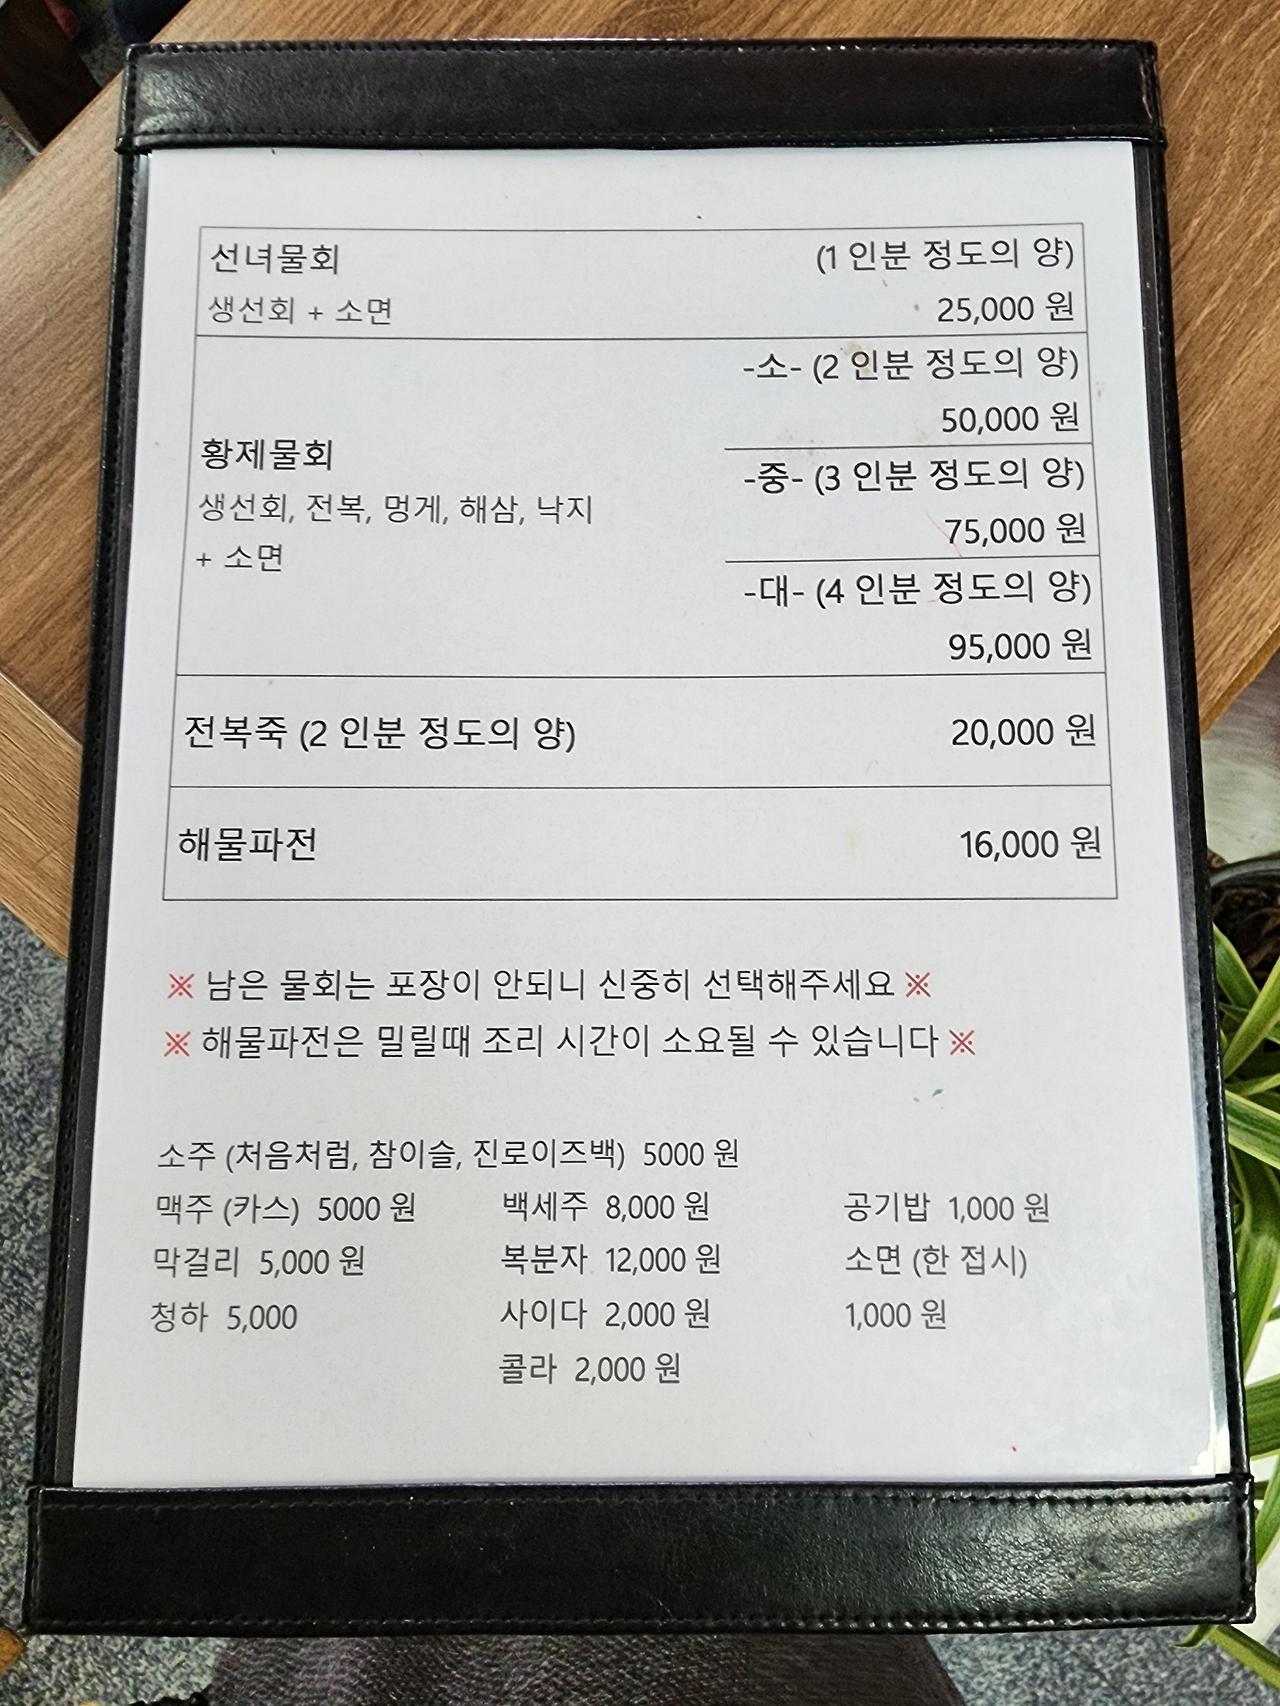 선녀물회 (1 인분 정도의 양)
생선회 + 소면 25,000 원
-소- (2 인분 정도의 양)
50,000 원
황제물회
생선회, 전복, 멍게, 해삼, 낙지
+ 소면
-중- (3 인분 정도의 양)
75,000 원
-대- (4 인분 정도의 양)
95,000 원
전복죽 (2 인분 정도의 양) 20,000 원
해물파전 16,000 원
※ 남은 물회는 포장이 안되니 신중히 선택해주세요 ※
※ 해물파전은 밀릴때 조리 시간이 소요될 수 있습니다 ※
소주 (처음처럼, 참이슬, 진로이즈백) 5000 원
맥주 (카스) 5000 원 백세주 8,000 원 공기밥 1,000 원
막걸리 5,000 원 복분자 12,000 원 소면 (한 접시)
청하 5,000 사이다 2,000 원 1,000 원
콜라 2,000 원